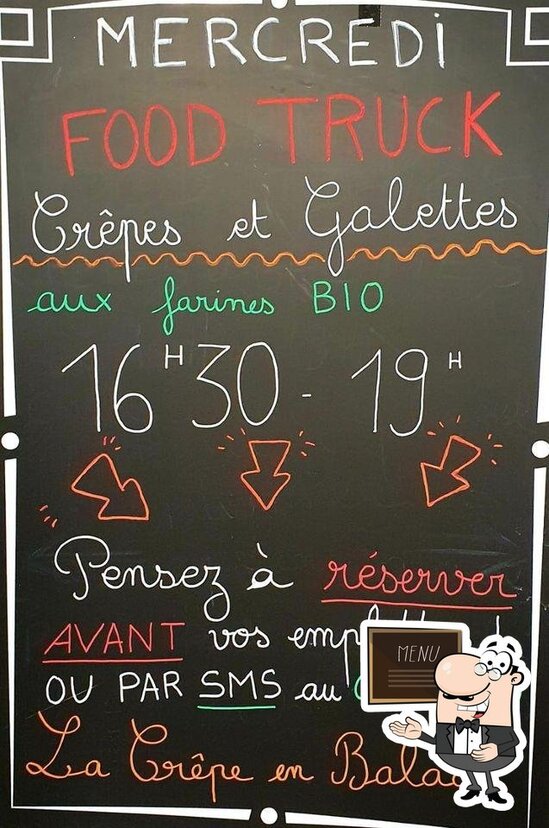 MERCREDI
FOOD TRUCK
Crêpes et Galettes
aux farines BIO
16H30 - 19H
Pensez à réserver
AVANT vos
OU PAR SMS au
La Crêpe en
MENU